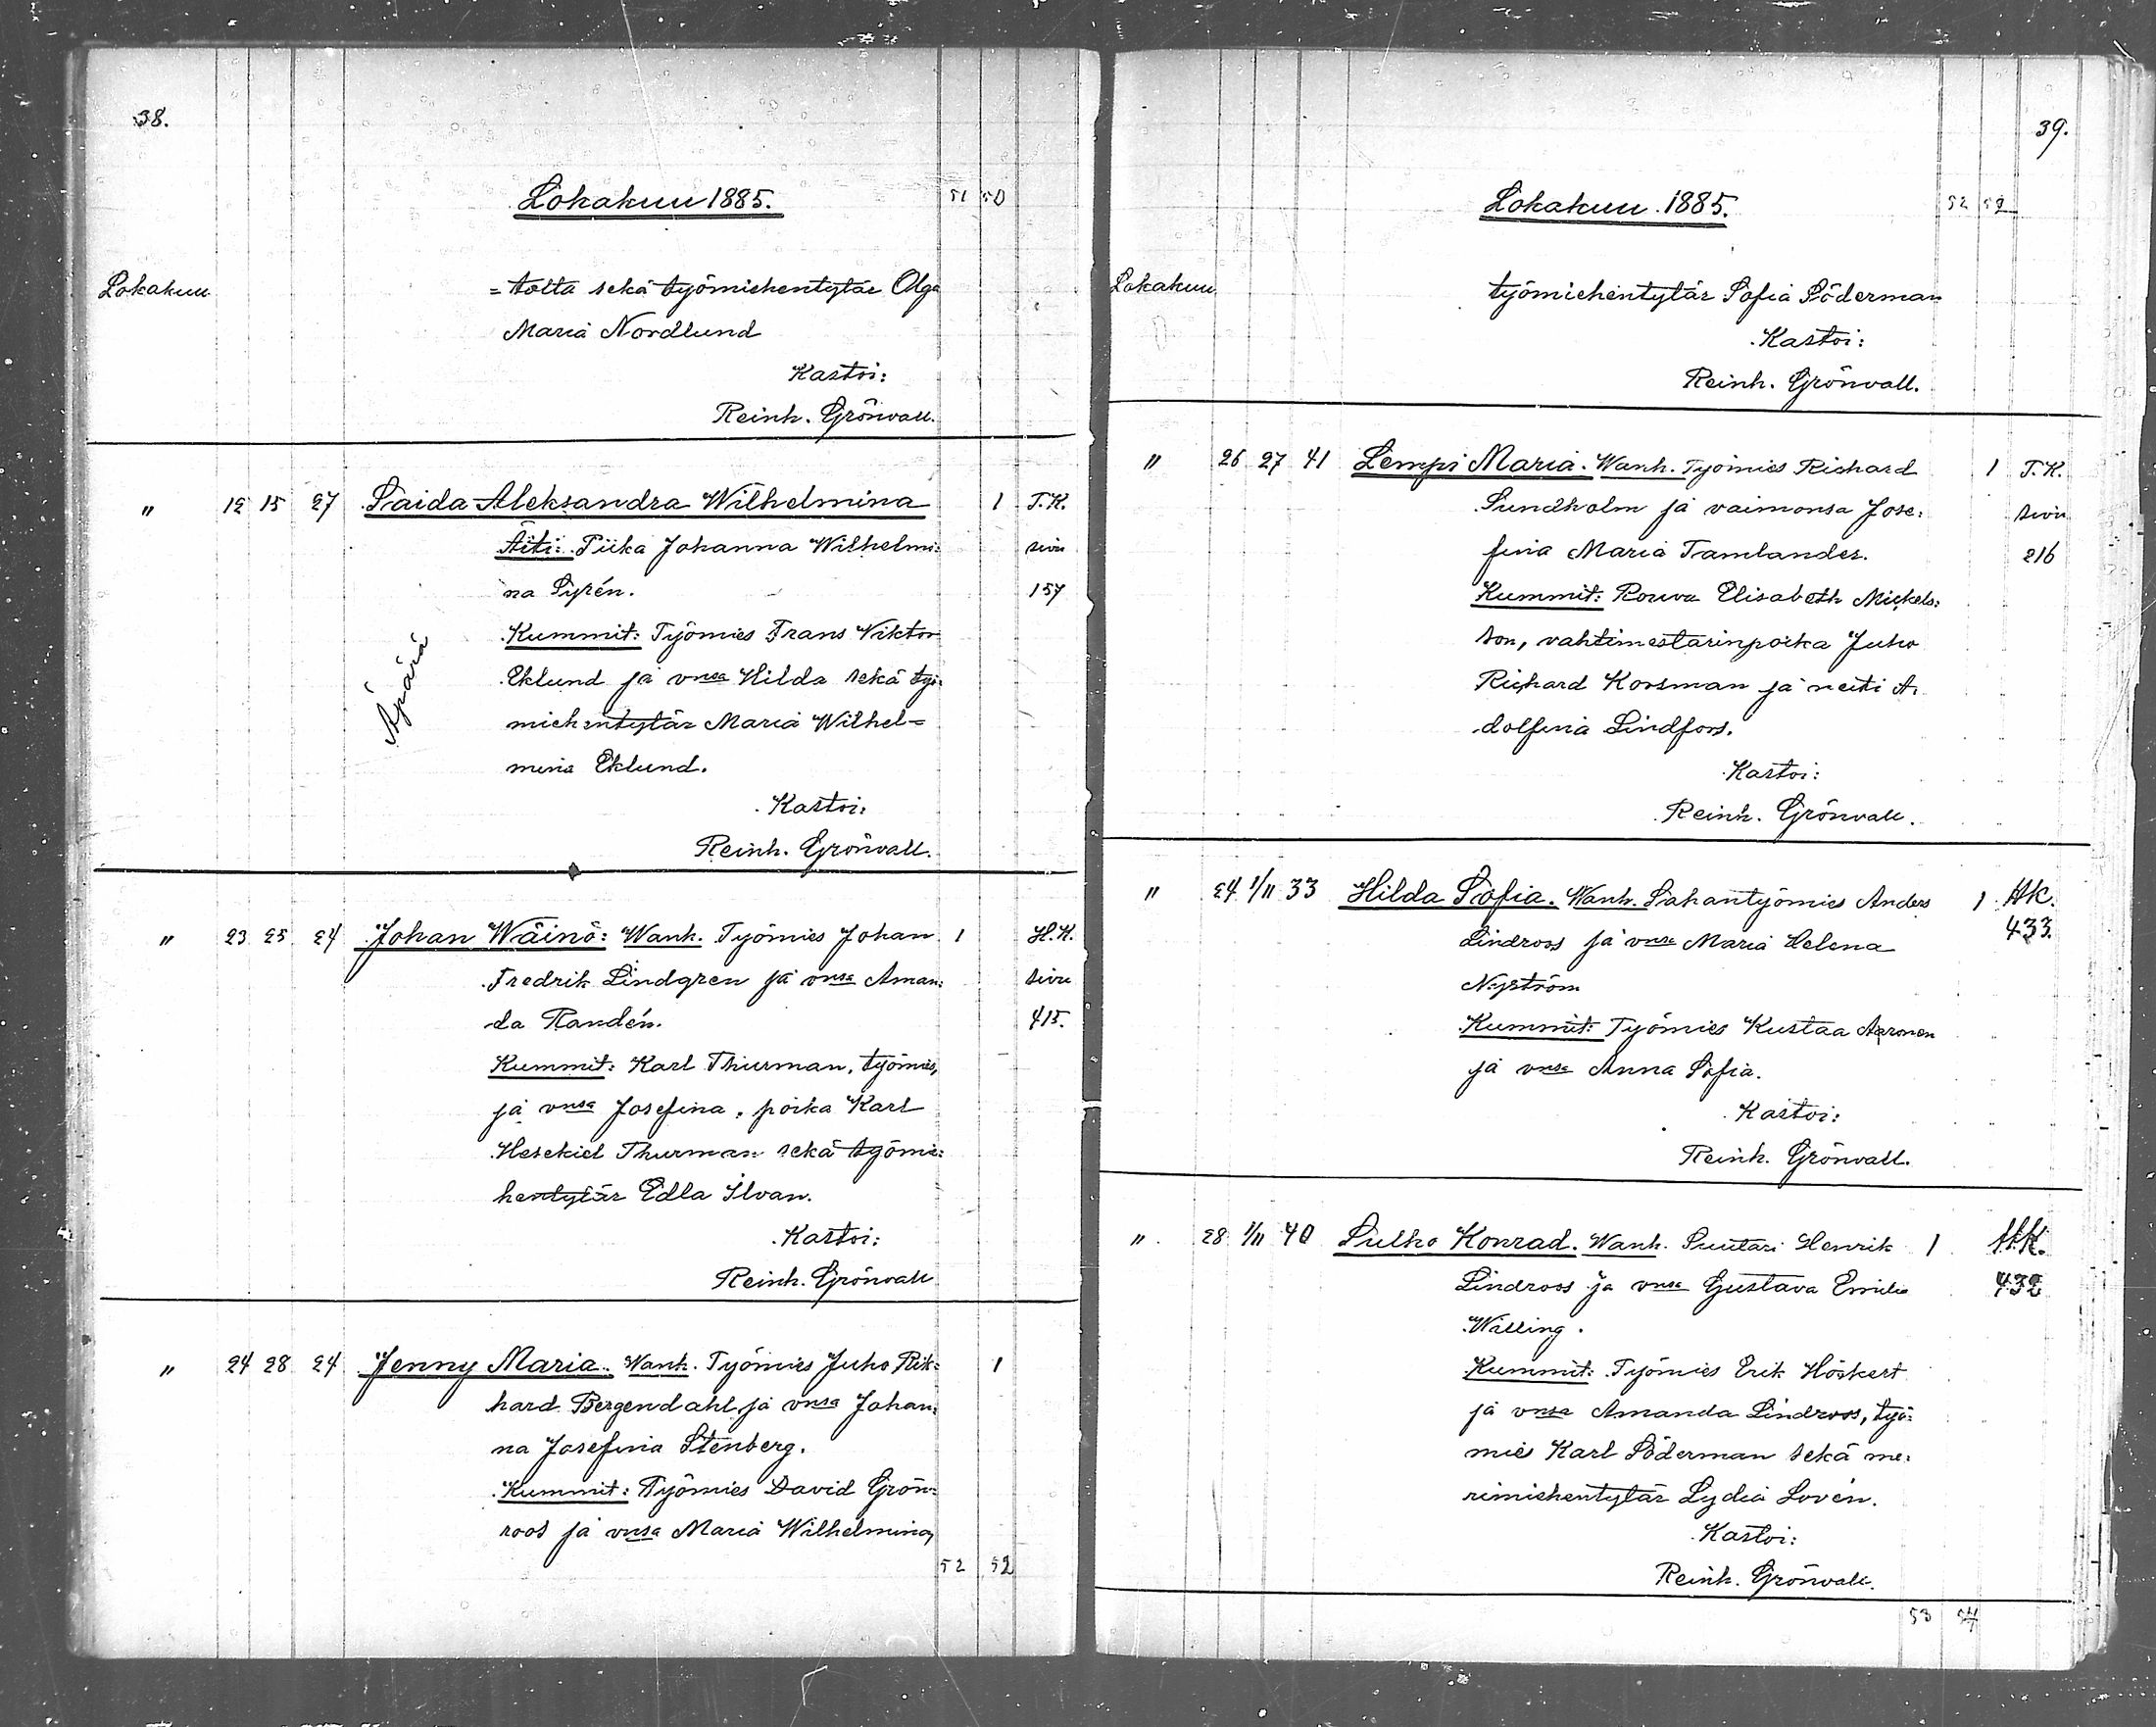 38.
Lokakuu 1885. 51 50
Lokakuu = tolta sekä työmiehentytär Olga
Maria Nordlund
Kastoi:
Reinh. Grönvall.
" 12 15 27 Saida Aleksandra Wilhelmina 1 T.K.
Äiti: Piika Johanna Wilhelmi: sivu
na Syrén. 157
Kummit: Työmies Frans Viktor
Eklund ja vnsa Hilda sekä työ:
miehentytär Maria Wilhel=
mina Eklund.
Äpärä
Kastoi:
Reinh. Grönvall.
" 23 25 24 Johan Wäinö: Wanh. Työmies Johan 1 H.K.
Fredrik Lindgren ja vnsa Aman: sivu
da Randén. 415.
Kummit: Karl Thurman, työmies,
ja vnsa Josefina, poika Karl
Hesekiel Thurman sekä työmie:
hentytär Edla Ilvan.
Kastoi:
Reinh. Grönvall
" 24 28 24 Jenny Maria. Wanh. Työmies Juho Rik: 1
hard Bergendahl ja vnsa Johan:
na Josefina Stenberg.
Kummit: Työmies David Grön:
roos ja vnsa Maria Wilhelmina,
52 52
39.
Lokakuu 1885. 52 52
Lokakuu työmiehentytär Sofia Söderman
Kastoi:
Reinh. Grönvall.
" 26 27 41 Lempi Maria. Wanh. Työmies Richard 1 T.K.
Sundholm ja vaimonsa Jose: sivu
fina Maria Tamlander. 216
Kummit: Rouva Elisabeth Mickels:
son, vahtimestarinpoika Juho
Richard Korsman ja neiti A:
dolfina Lindfors.
Kastoi:
Reinh. Grönvall.
" 24 1/11 33 Hilda Sofia. Wanh. Sahantyömies Anders 1 HK.
Lindroos ja vnsa Maria Helena 433.
Nyström
Kummit: Työmies Kustaa Aaronen
ja vnsa Anna Sofia.
Kastoi:
Reinh. Grönvall.
" 28 1/11 40 Sulho Konrad. Wanh. Suutari Henrik 1 H.K.
Lindroos ja vnsa Gustava Emilia 432
Willing.
Kummit: Työmies Erik Höskert
ja vnsa Amanda Lindroos, työ:
mies Karl Söderman sekä me:
rimiehentytär Lydia Lovén.
Kastoi:
Reinh. Grönvall.
53 54